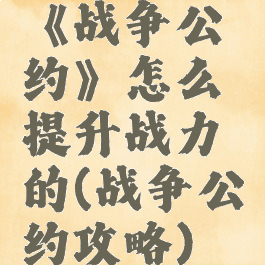 《战争公
约》怎么
提升战力
的(战争公
约攻略)